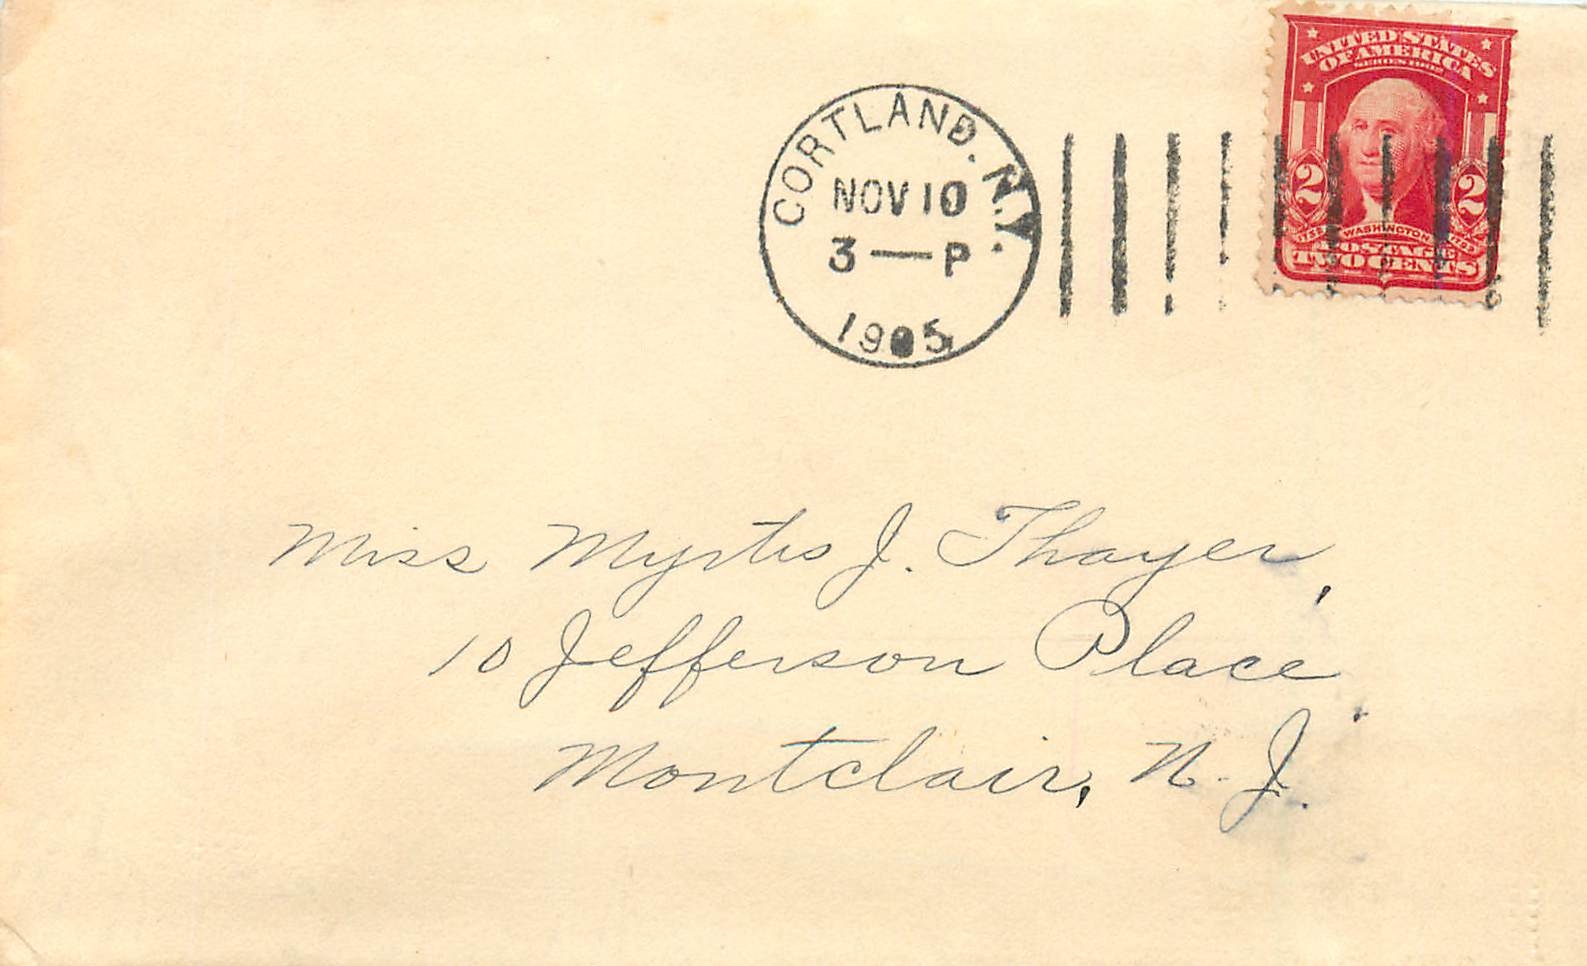 UNITED STATES
OF AMERICA
SERIES 1902
2 2
1732 WASHINGTON 1799
POSTAGE
TWO CENTS
CORTLAND. N.Y.
NOV 10
3 — P
1905
Miss Myrtis J. Thayer,
10 Jefferson Place
Montclair, N. J.